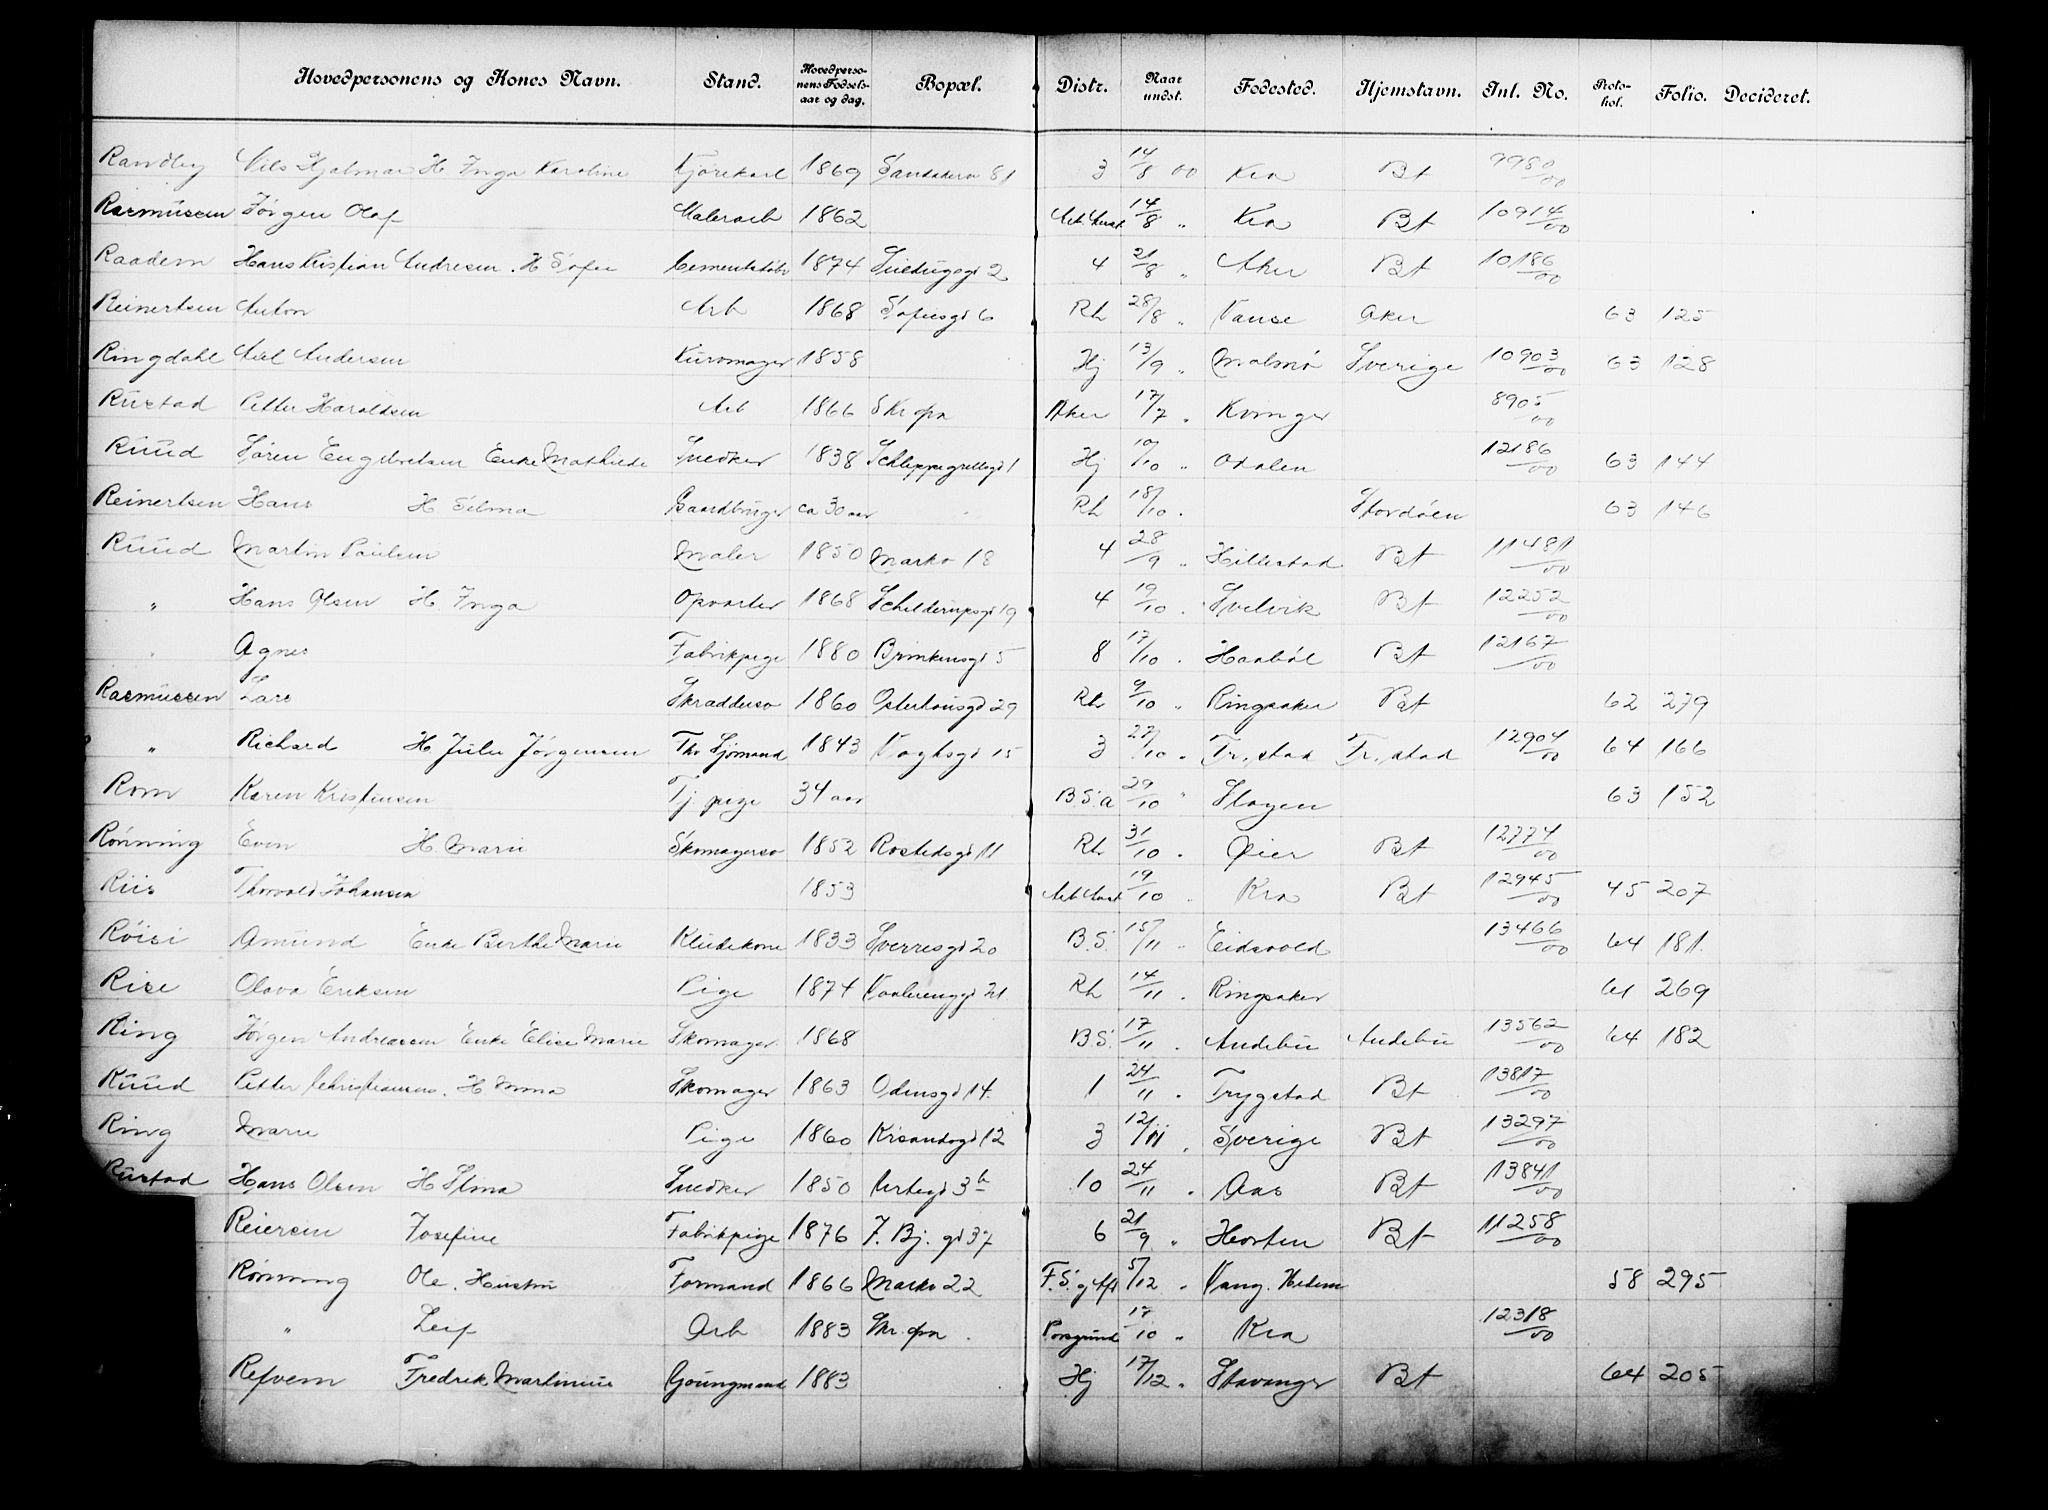 Hovedpersonens og Kones Navn. Stand. Hovedpersonens Fødselsaar og dag. Bopæl. Distr. Naar undst. Fødested. Hjemstavn. Int. No. Protokol. Folio. Decideret.
Randby Nils Hjalmar H. Inga Karoline Kjørekarl 1869 81 3 14/8 00 Kra Bt 9980/00
Rasmussen Jørgen Olaf Malerarb 1862 14/8 " Kra Bt 10914/00
Raadem Hans Kristian Andresen. H Sofie 1874 2 4 21/8 " Aker Bt 10186/00
Reinertsen Anton Arb 1868 Sofiesgd 6 Rh 28/8 " Vanse Aker 63 125
Ringdahl Axel Andersen Kurvmager 1858 Hj 13/9 " Malmø Sverige 10903/00 63 128
Rustad Petter Haraldsen Arb 1866 Skr. opn Aker 17/7 " Kvinger 8905/00
Ruud Søren Engebretsen Enke Mathilde Snedker 1838 Schleppegrellsgd 1 Hj 10/10 " Odalen 12186/00 63 144
Reinertsen Hans H Selma Gaardbruger ca 30 aar Rh 18/10 " Stordøen 63 146
Ruud Martin Paulsen Maler 1850 Markv 18 4 28/9 " Hillestad Bt 11481/00
" Hans Olsen H. Inga Opvarter 1868 Schilderupsgd 19 4 19/10 " Svelvik Bt 12252/00
" Agnes Fabrikpige 1880 Brinkensgd 5 8 17/10 " Haabøl Bt 12167/00
Rasmussen Lars Skräddersv 1860 Osterhausgd 29 Rh 9/10 " Ringsaker Bt 62 279
" Richard H. Julie Jørgensen Thv Sjømand 1843 Vogtsgd 15 3 27/10 " Fr. stad Fr. stad 12904/00 64 166
Rom Karen Kristensen Tj. pige 34 aar B. S. a 29/10 " Slagen 63 152
Rønning Even H. Marie Skomagersv 1852 Rostedsgd 11 Rh 31/10 " Øier Bt 12774/00
Riis Thorvald Johansen 1853 19/10 " Kra Bt 12945/00 45 207
Røisi Amund Enke Berthe Marie Kludekone 1833 Sverresgd 20 B. S. 15/11 " Eidsvold 13466/00 64 181.
Rise Olava Eriksen Pige 1874 Vaalerenggd 21 Rh 14/11 " Ringsaker 61 269
Ring Jørgen Andreassen Enke Elise Marie Skomager. 1868 B. S. 17/11 " Andebu Andebu 13562/00 64 182
Ruud Petter Christiansen. H Emma Skomager 1863 Odinsgd 14. 1 24/11 " Trygstad Bt 13817/00
Ring Marie Pige 1860 Krsandsgd 12 3 12/11 " Sverige Bt 13297/00
Rustad Hans Olsen H Stina Snedker 1850 Urtegd 3b 10 24/11 " Aas Bt 13841/00
Reiersen Josefine Fabrikpige 1876 J. Bj. gd 37 6 21/9 " Horten Bt 11258/00
Rønning Ole. Hustru Formand 1866 Markv 22 5/12 " Vang. Hedem 58 295
" Leif Arb 1883 Skr. opn. Porsgrund 17/10 " Kra 12318/00
Refvem Fredrik Martinius Youngmand 1883 Hj 17/12 " Stavanger Bt 64 205